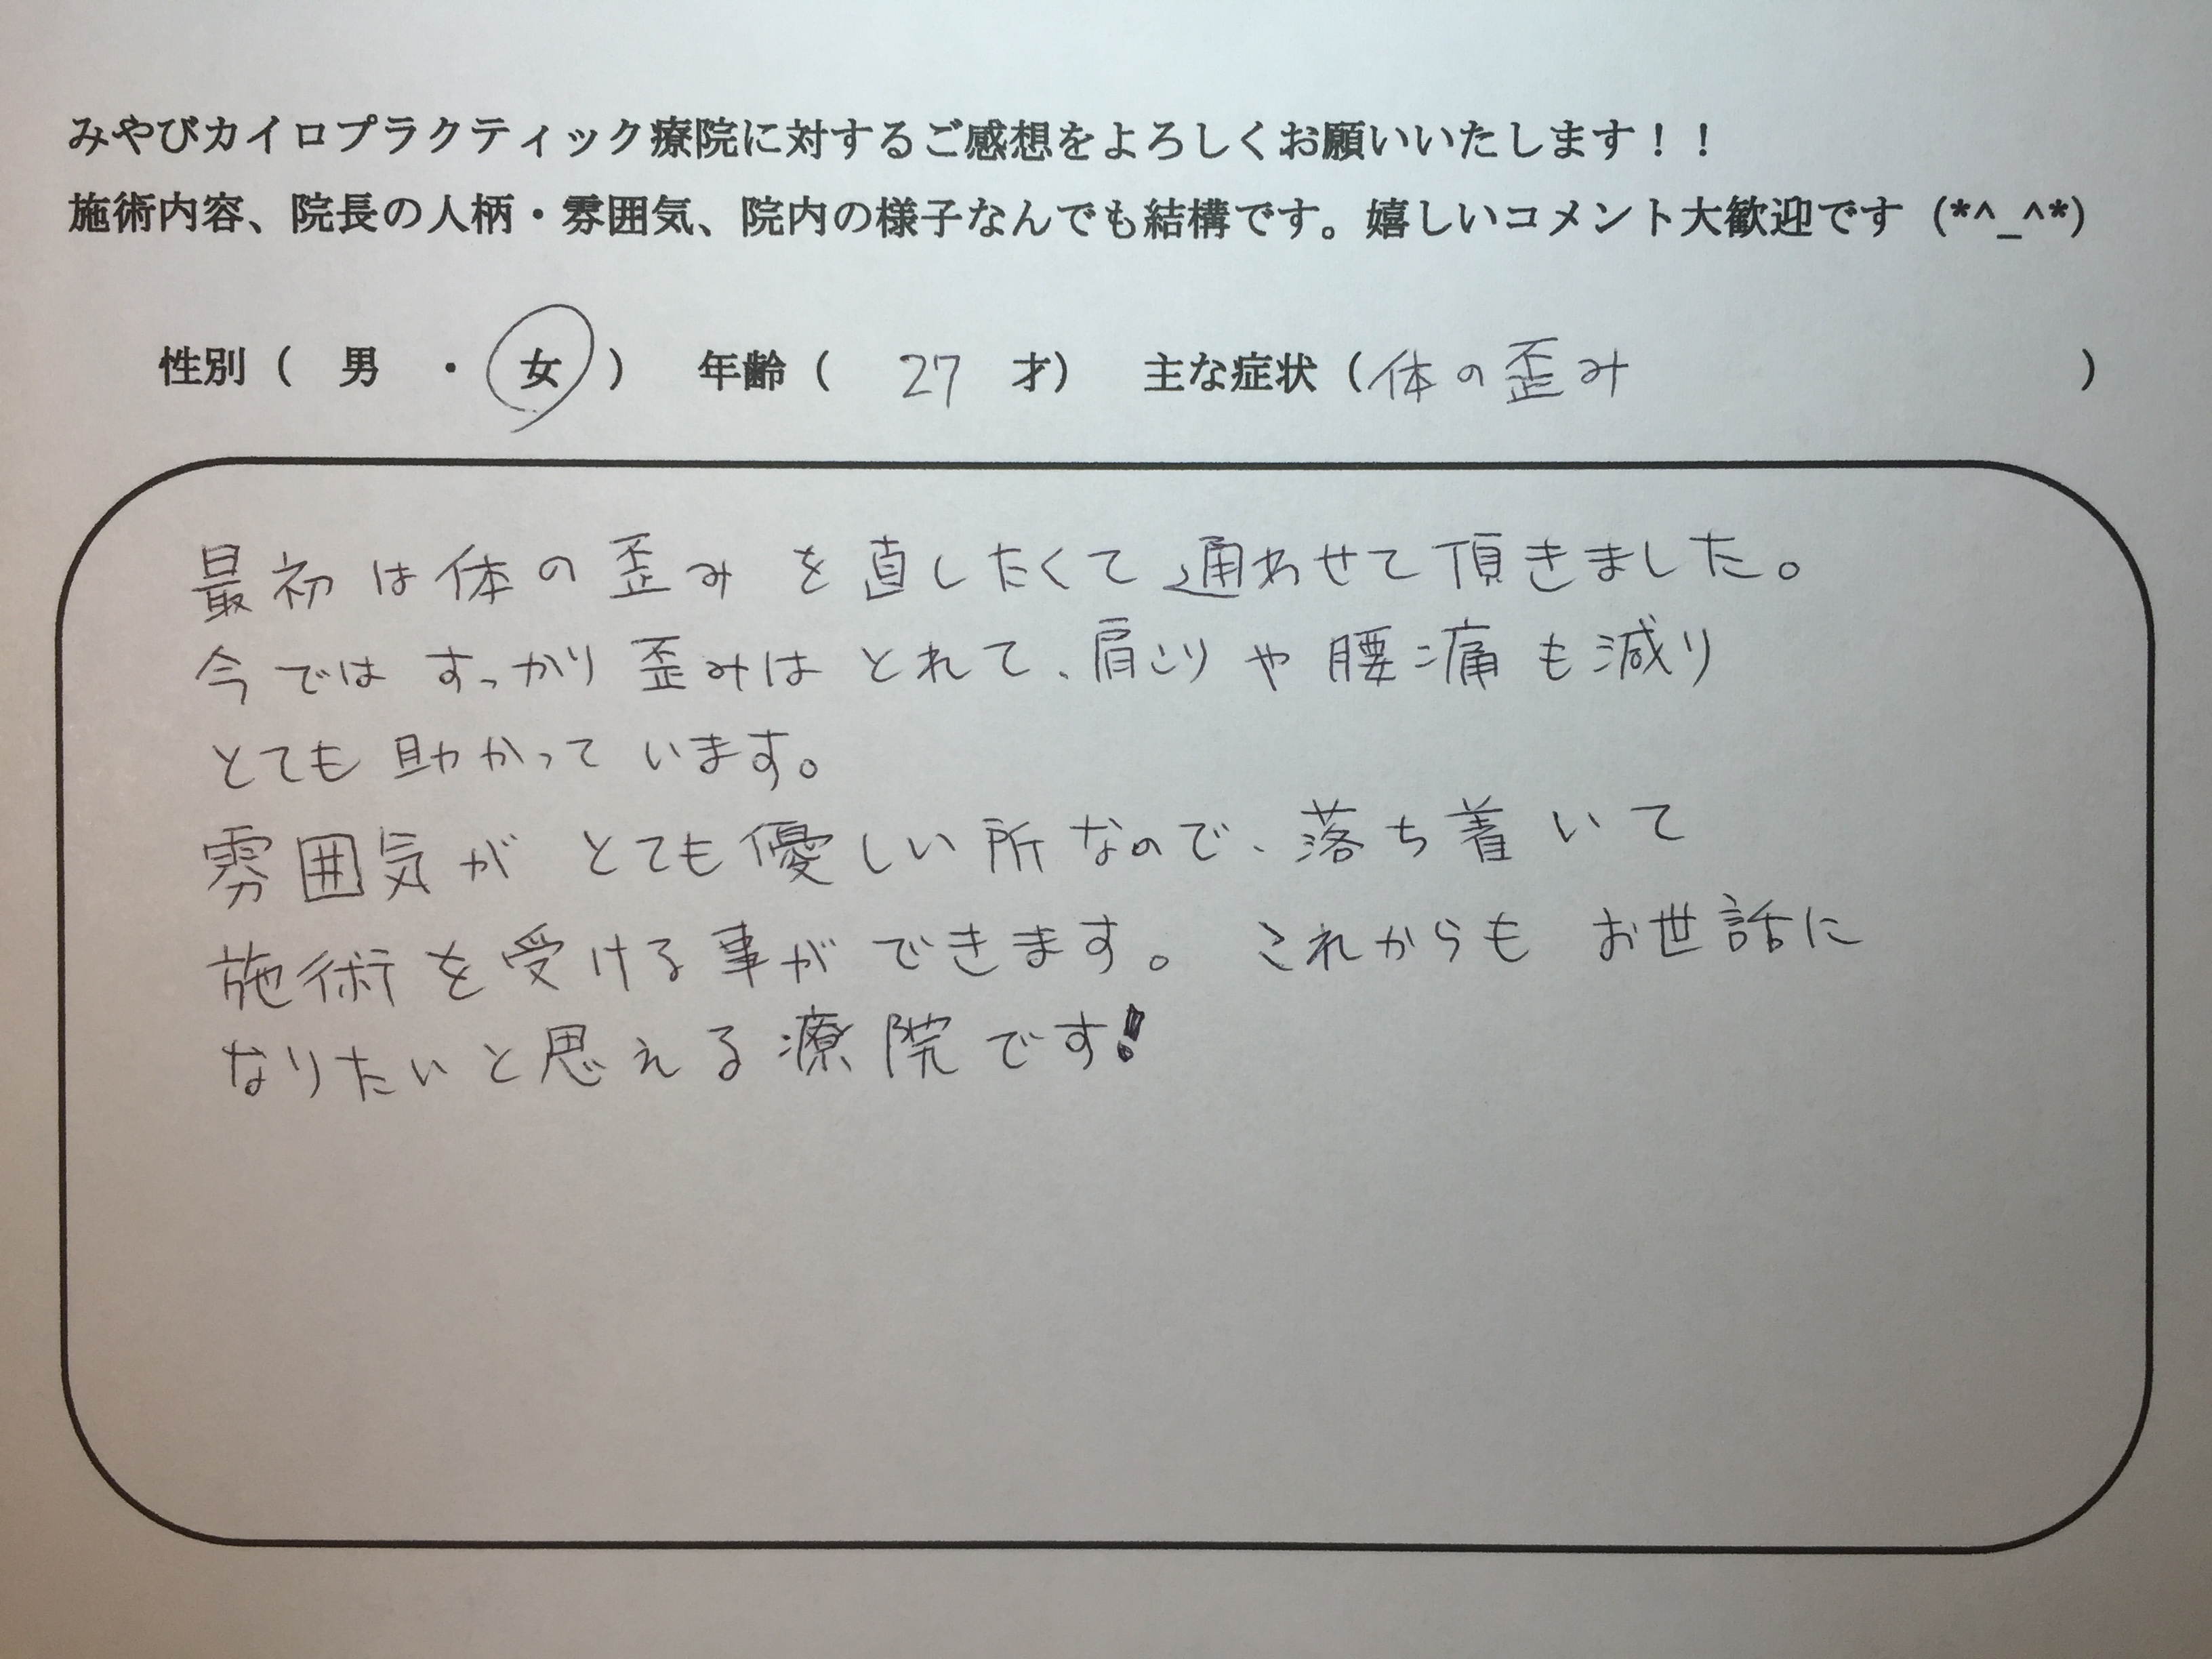 みやびカイロプラクティック療院に対するご感想をよろしくお願いいたします！！
施術内容、院長の人柄・雰囲気、院内の様子なんでも結構です。嬉しいコメント大歓迎です（*^_^*）
性別（　男　・　女　）　年齢（　27　才）　主な症状（体の歪み　）
最初は体の歪みを直したくて通わせて頂きました。
今ではすっかり歪みはとれて、肩こりや腰痛も減り
とても助かっています。
雰囲気がとても優しい所なので、落ち着いて
施術を受ける事ができます。これからもお世話に
なりたいと思える療院です！